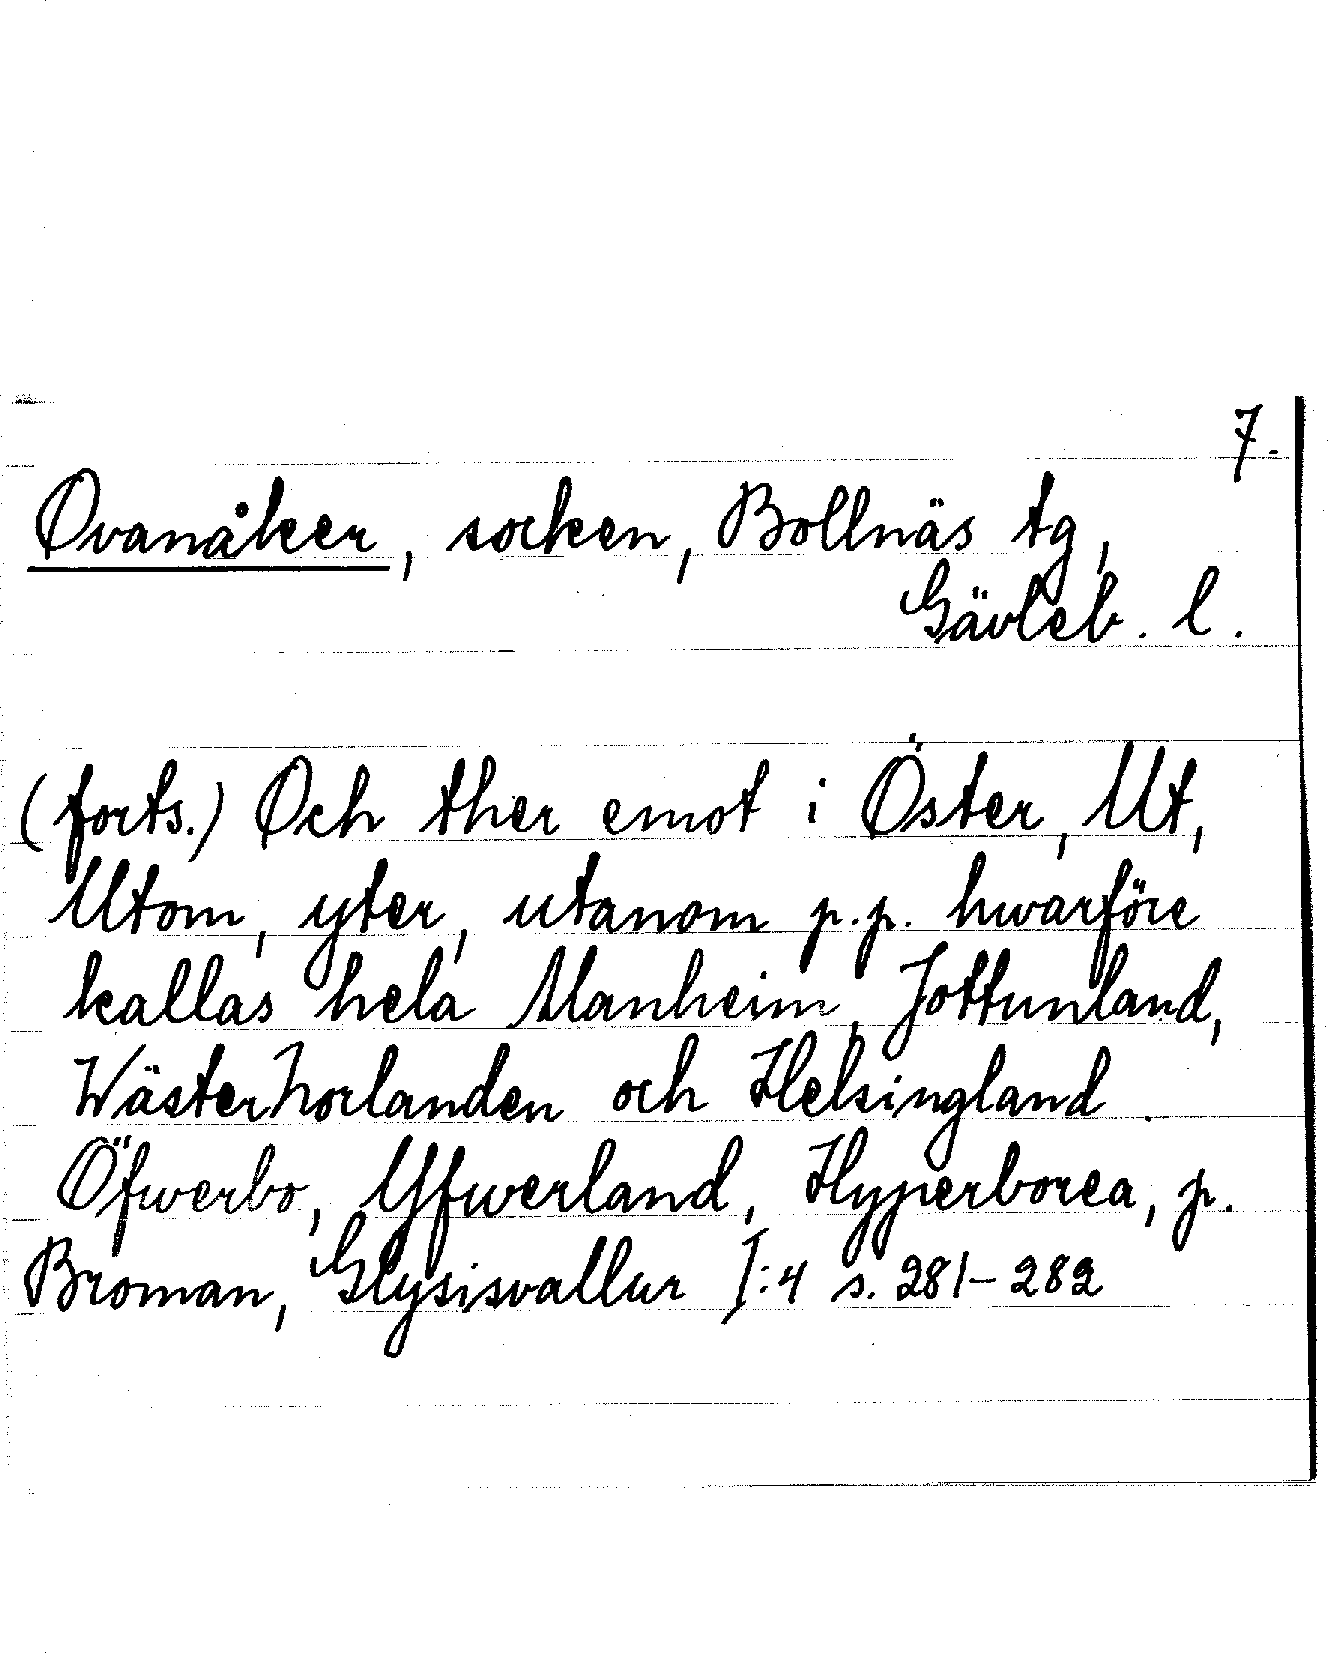 7.
Ovanåker, socken, Bollnäs tg,
Gävleb. l.
(forts.) Och ther emot i Öster, Ut,
Utom, yter, utanom p.p. hwarföre
kallas hela Manheim, Jottunland,
WästerNorlanden och Helsingland.
Öfwerbo, Yfwerland, Hyperborea, p.
Broman, Glysisvallur I:4 s. 281-282